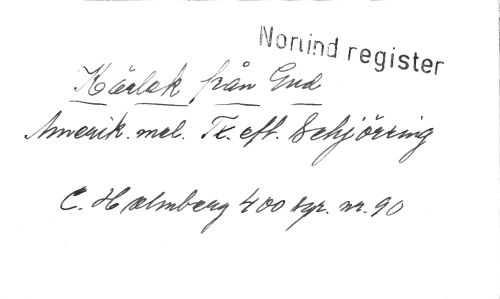 Norlind register
Kärlek från Gud
Amerik. mel. Tx. eft. Schjörring
C. Holmberg 400 sgr. nr. 90